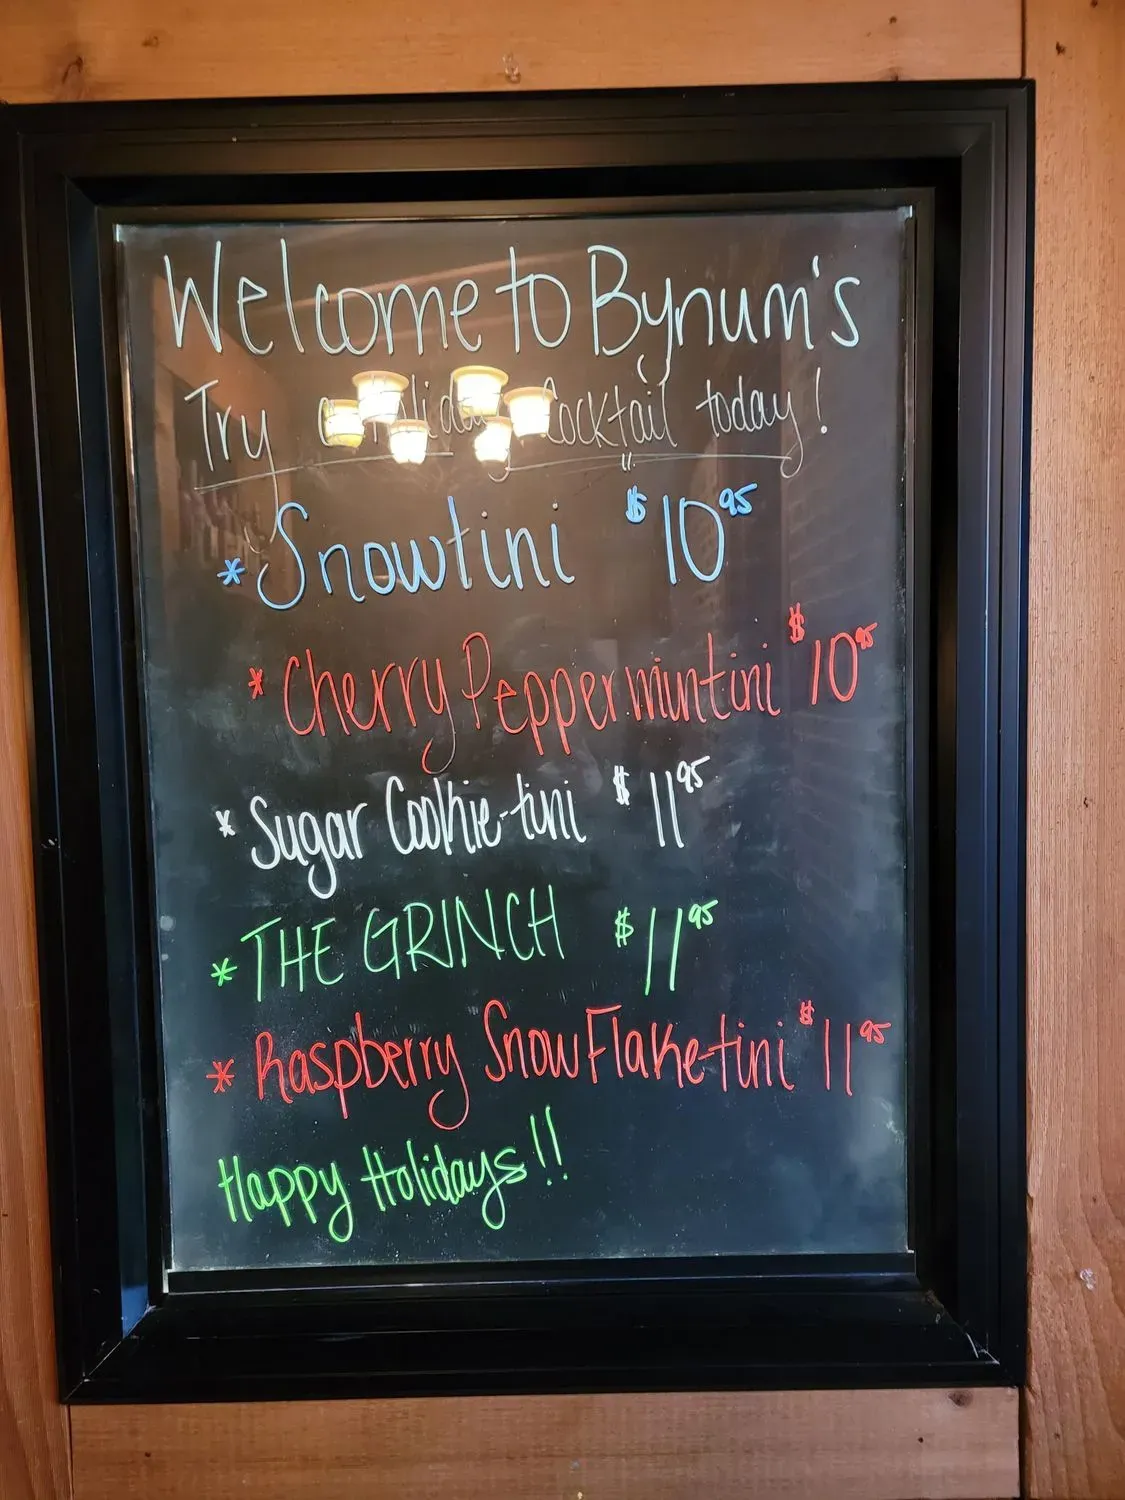 Welcome to Bynum's
Try a Holiday Cocktail today!
* Snowtini $10.95
* Cherry Peppermintini $10.95
* Sugar Cookie-tini $11.95
* THE GRINCH $11.95
* Raspberry SnowFlake-tini $11.95
Happy Holidays!!